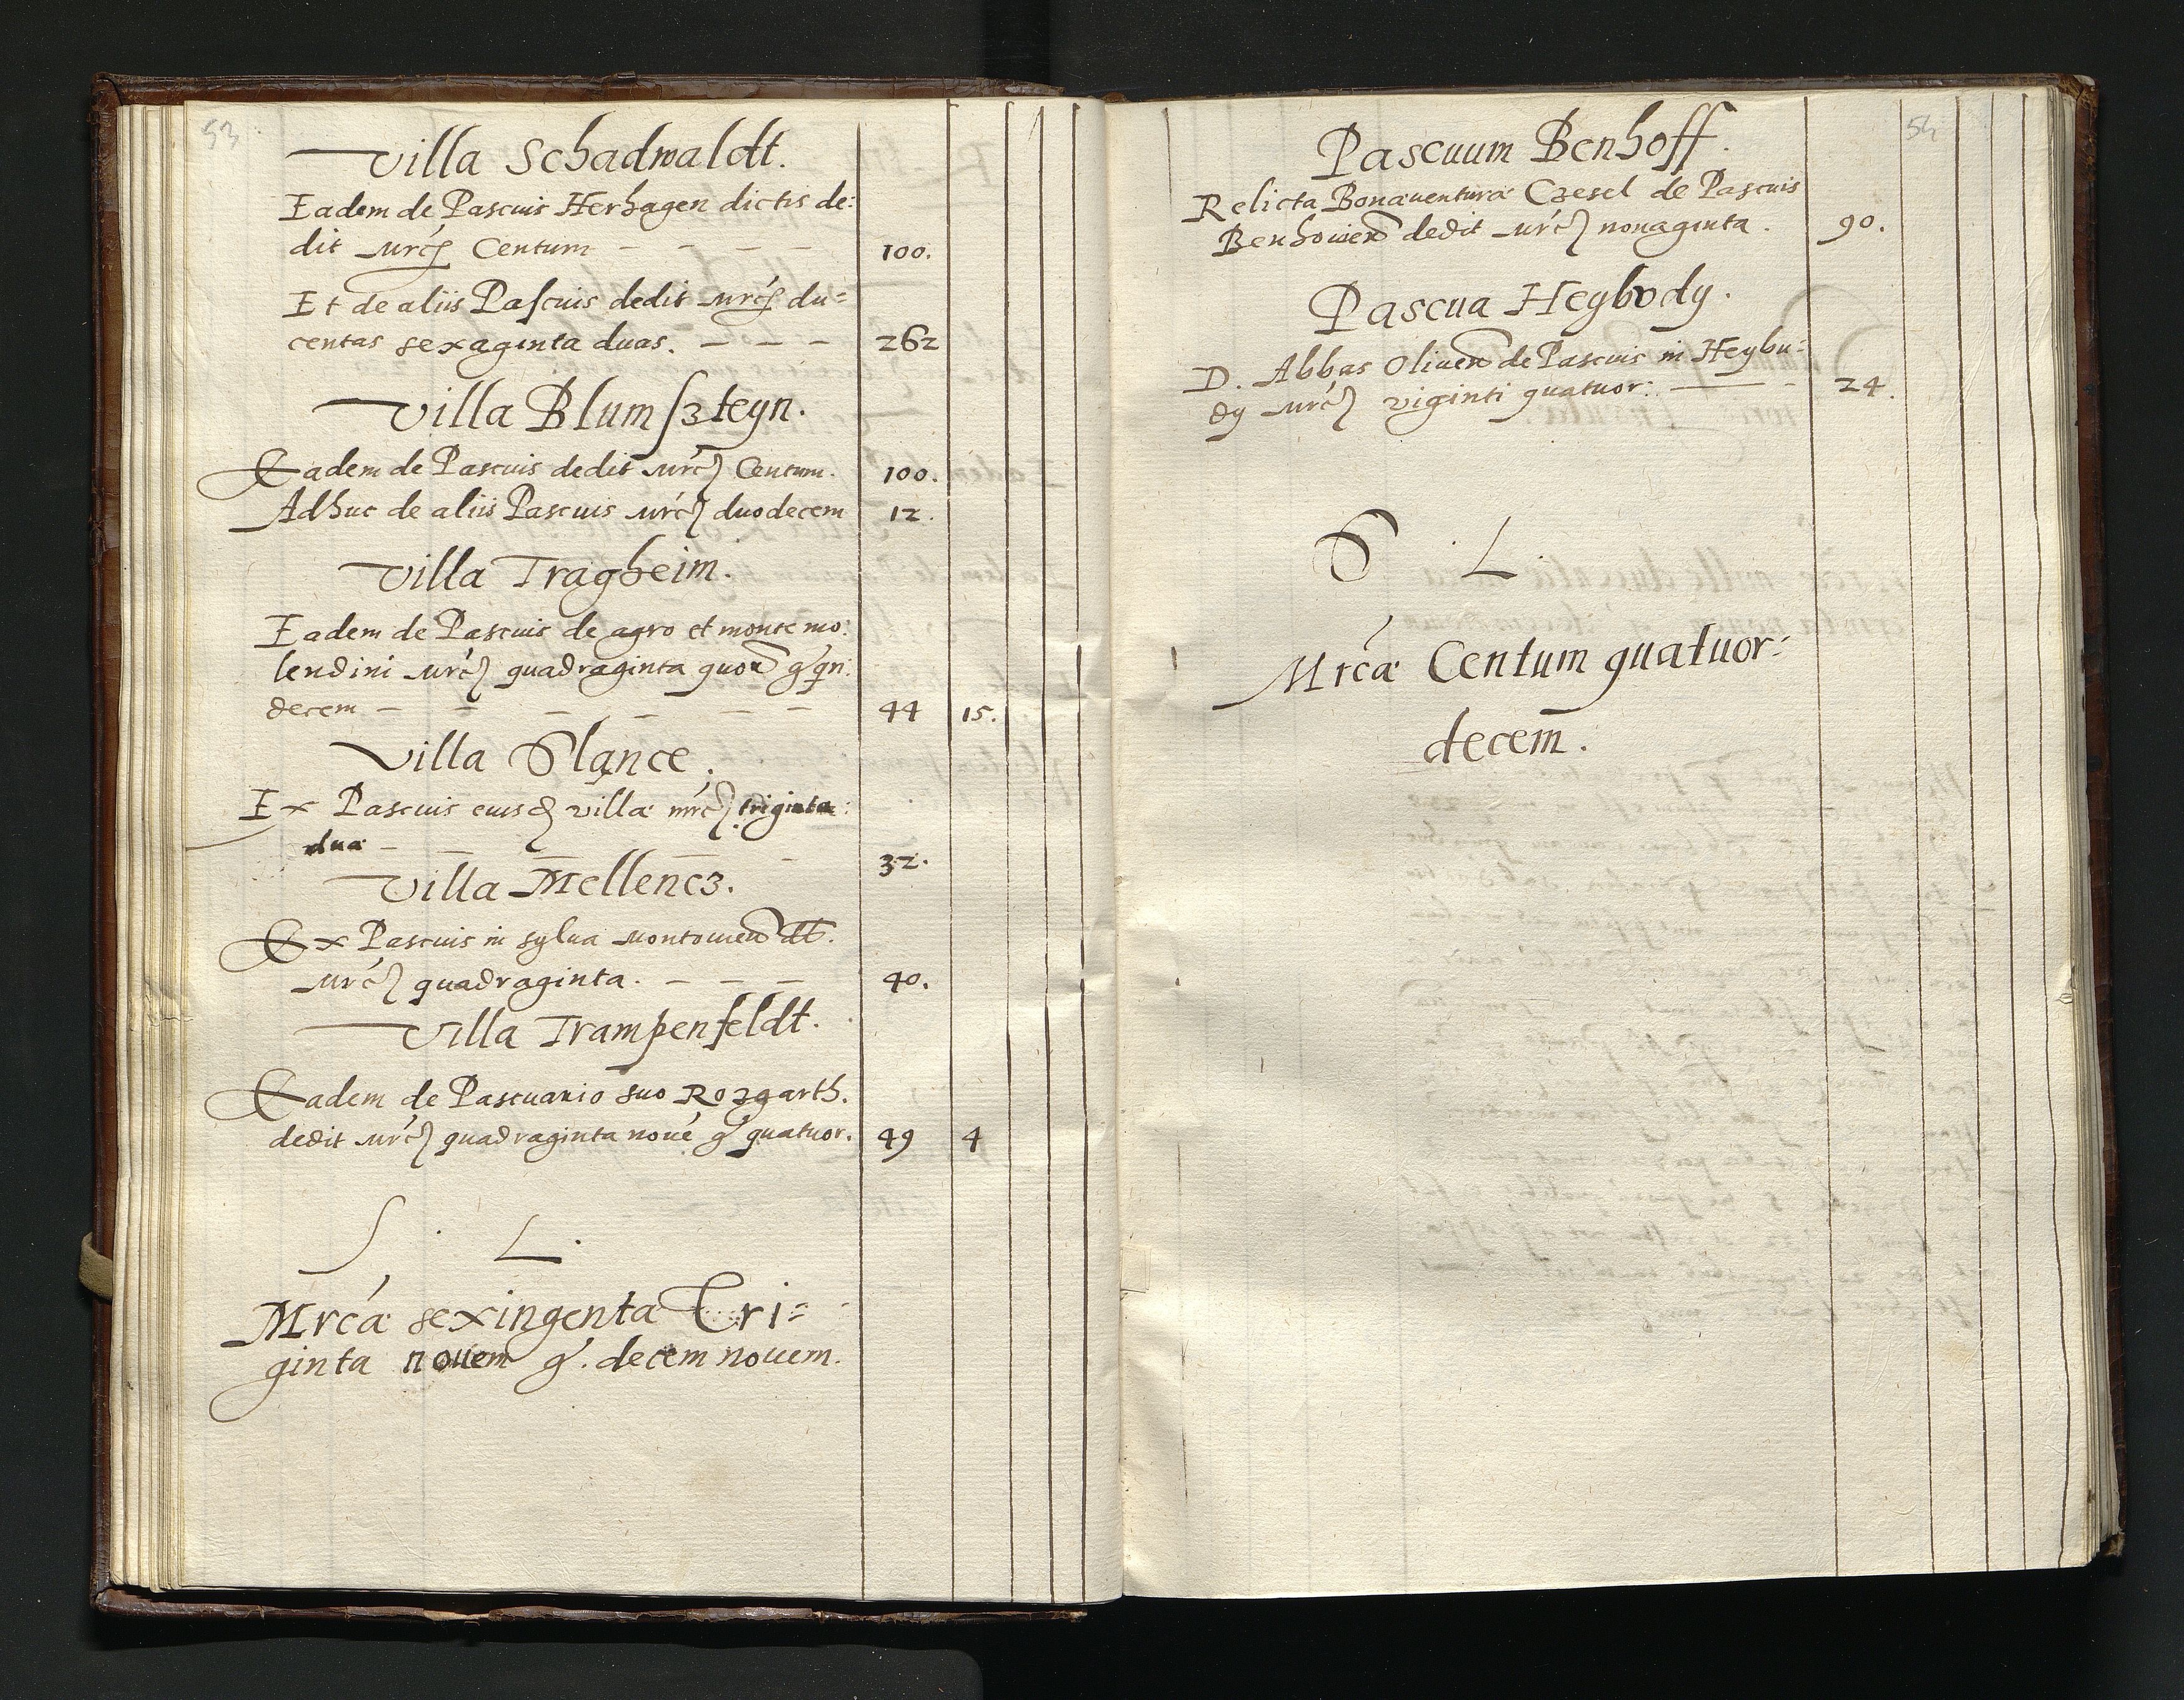 53
Villa Schadwaldt.
Eadem de Pascuis Herhagen dictis de:
dit mrc̃ Centum 100.
Et de aliis Pascuis dedit mrc̃ du=
centas sexaginta duas. 262
Villa Blumsztegn.
Eadem de Pascuis dedit mrc̃ Centum. 100.
Adhuc de aliis Pascuis mrc̃ duodecem 12.
Villa Tragheim.
Eadem de Pascuis de agro et monte mo:
lendini mrc̃ quadraginta quor g qn:
decem 44 15.
Villa Slance.
Ex Pascuis eiusd villæ mrc̃ triginta:
dua 32.
Villa Mellencz.
Ex Pascuis in sylua Montouien dt.
mrc̃ quadraginta. 40.
Villa Trampenfeldt.
Eadem de Pascuario suo Rozgarth.
dedit mrc̃ quadraginta noué g quatuor. 49 4
S. L.
Mrcæ sexingenta Tri=
ginta nouem g. decem nouem.
54
Pascuum Benhoff.
Relicta Bonauenturæ Czesel de Pascuis
Benhouien dedit mrc̃ nonaginta. 90.
Pascua Heybody.
D. Abbas Oliuen de Pascuis in Heybu:
dy mrc̃ viginti quatuor: 24.
S. L
Mrcæ Centum quatuor:
decem.